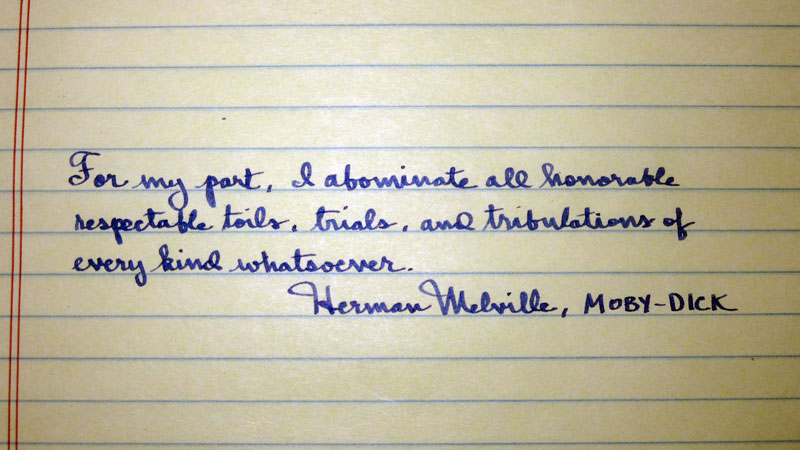 For my part, I abominate all honorable
respectable toils, trials, and tribulations of
every kind whatsoever.
Herman Melville, MOBY-DICK